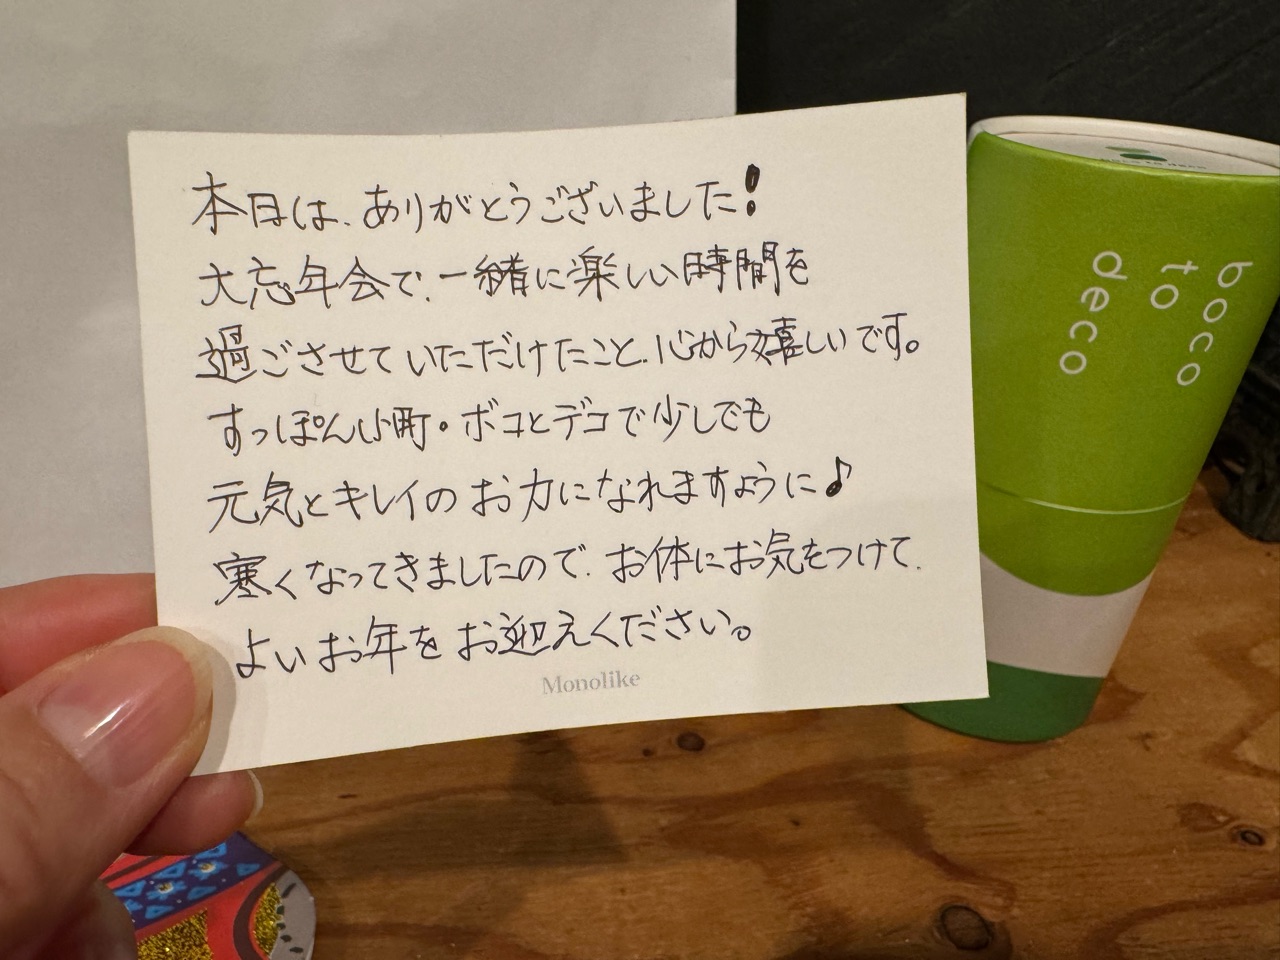 本日は、ありがとうございました!
大忘年会で、一緒に楽しい時間を
過ごさせていただけたこと、心から嬉しいです。
すっぽん小町・ボコとデコで少しでも
元気とキレイのお力になれますように♪
寒くなってきましたので、お体にお気をつけて、
よいお年をお迎えください。
Monolike
boco
to
deco